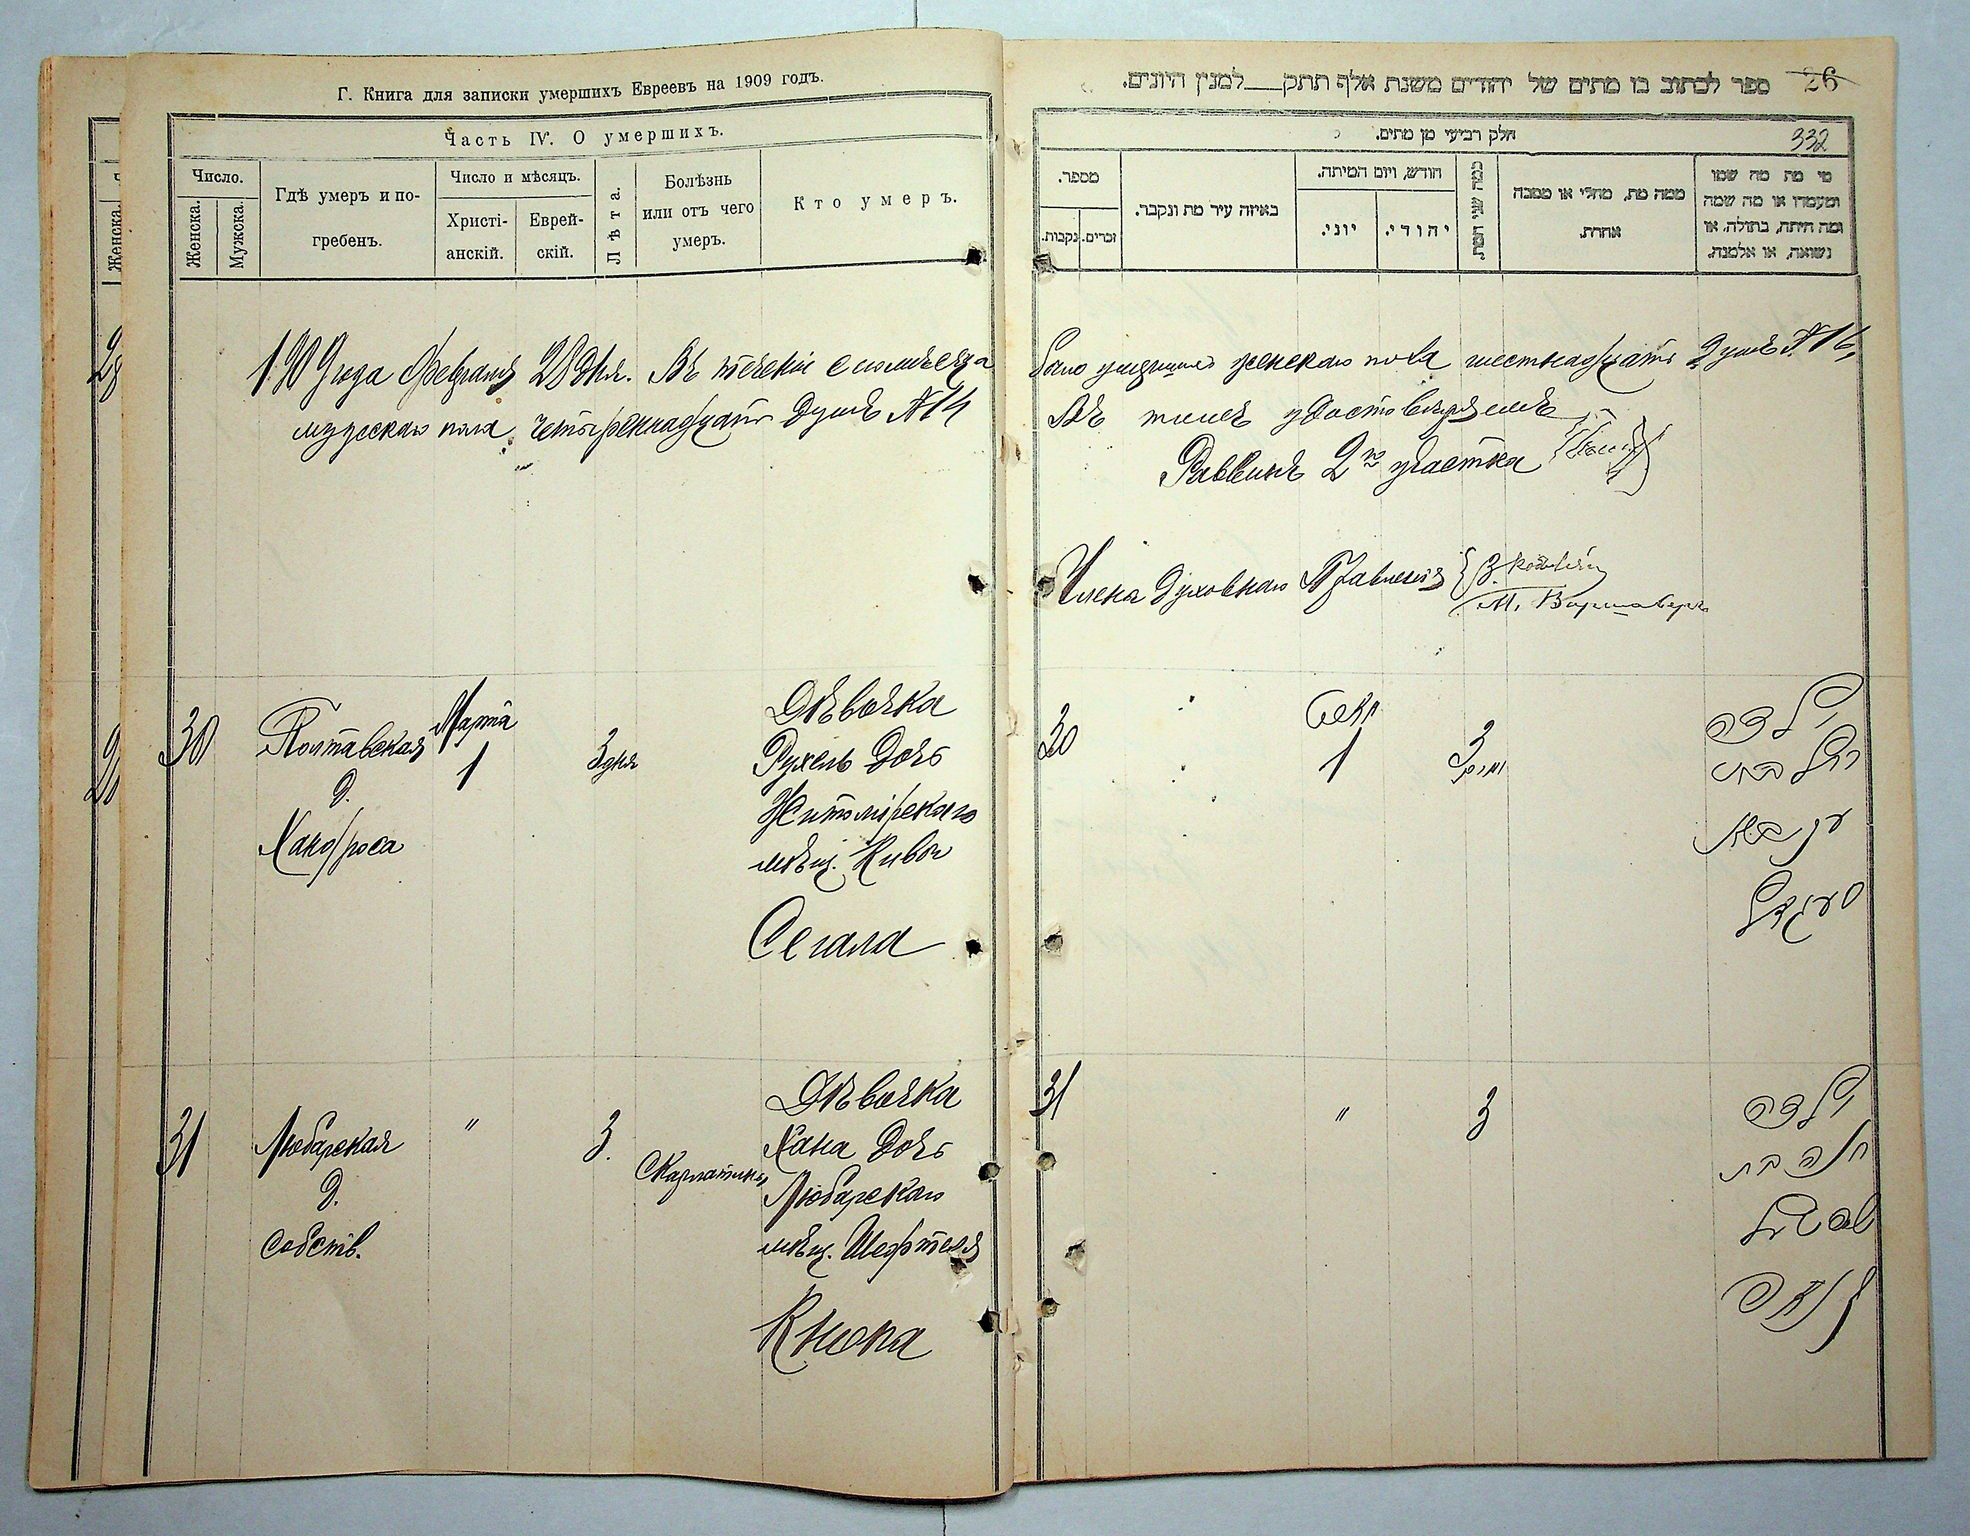 Г. Книга для записки умершихъ Евреевъ на 1909 годъ.
Часть IV. О умершихъ.
Число.
Женска.
Мужска.
Гдѣ умеръ и по-
гребенъ.
Число и мѣсяцъ.
Христі-
анскій.
Еврей-
скій.
Лѣта.
Болѣзнь
или отъ чего
умеръ.
Кто умеръ.
1909 года Февраля 28 дня. Въ теченіи сего мѣсяца
мужскаго пола четырнадцать душъ №14
30
Полтавская
д.
Хандроса
Марта
1
3 дня
Дѣвочка
Рухель дочь
Житомірскаго
мѣщ. Кивы
Сегала
31
Любарская
д.
Собств.
"
3.
Скарлатина
Дѣвочка
Хана дочь
Любарскаго
мѣщ. Шефтеля
Кнопа
26
ספר לכתוב בו מתים של יהודים משנת אלף תתק למנין היונים.
332
חלק רביעי מן מתים.
מספר.
נקבות.
זכרים.
באיזה עיר מת ונקבר.
חודש, ויום המיתה.
יוני.
יהודי.
כמה שני המת.
ממה מת, מחלי או מסבה
אחרת.
מי מת מה שמו
ומעמדו או מה שמה
ומה היתה, בתולה, או
נשואה, או אלמנה.
было умершихъ женскаго пола шестнадцать душъ №16,
въ томъ удостовѣряемъ
Раввинъ 2го участка
Члена Духовнаго Правленія
М. Варшаверъ
30
1
3
ילדה
רחל בת
סעגאל
31
"
3
ילדה
חנה בת